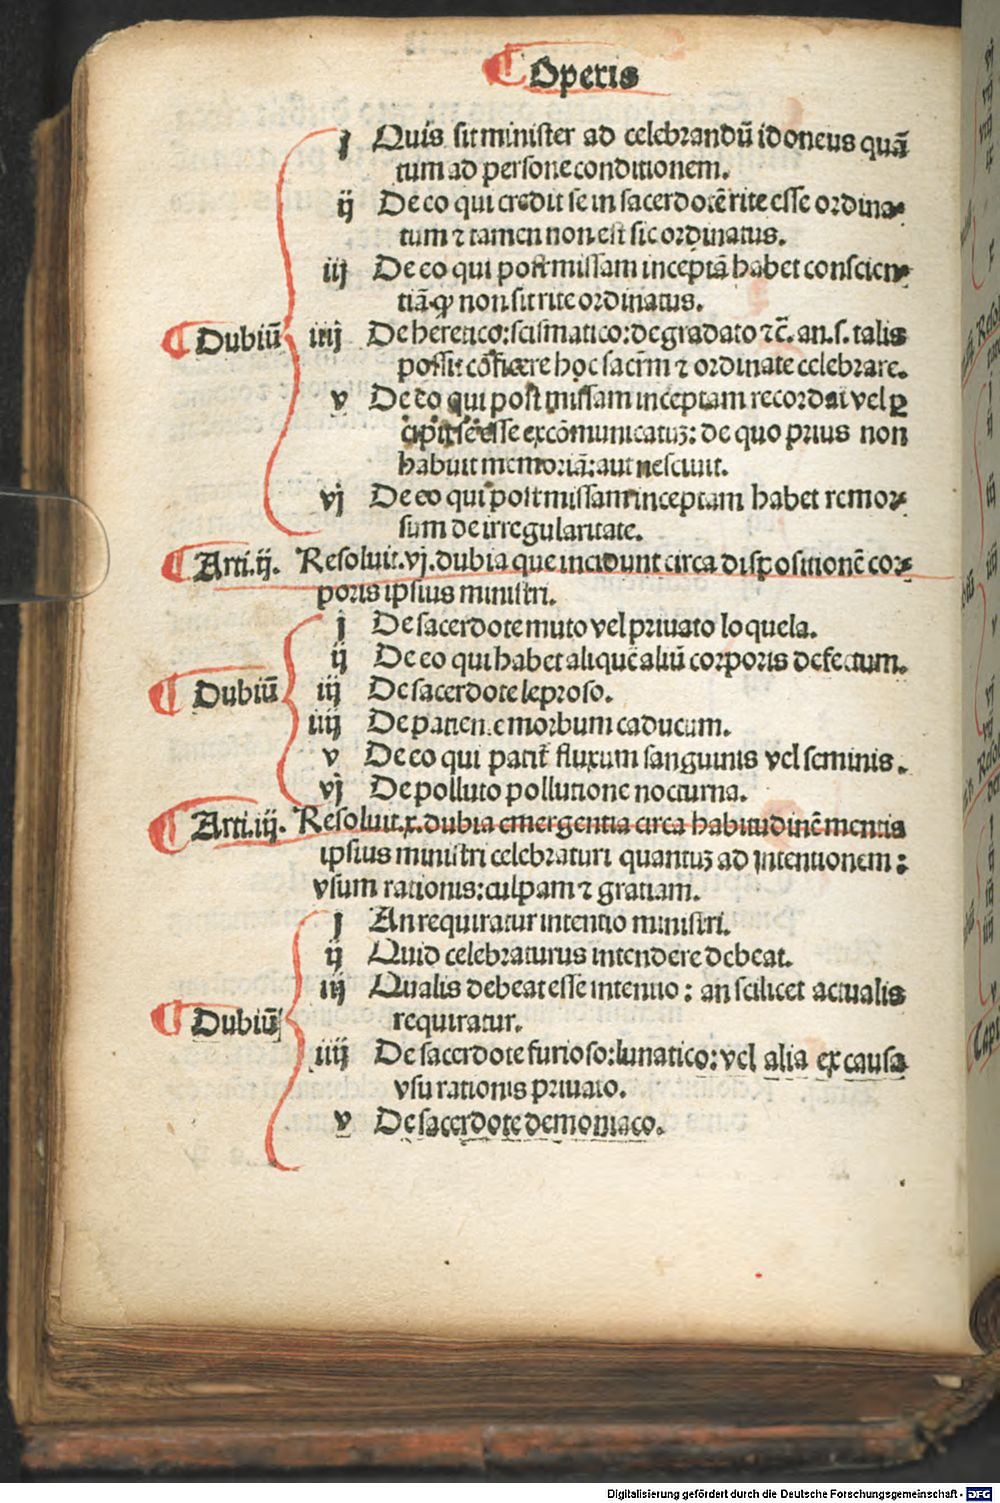 ¶ Operis
j Quis sit minister ad celebrandũ idoneus quã
tum ad persone conditionem.
ij De eo qui credit se in sacerdotẽ rite esse ordina⸗
tum ⁊ tamen non est sic ordinatus.
iij De eo qui post missam inceptã habet conscien⸗
tiã ꝙ non sit rite ordinatus.
¶ Dubiũ iiij De heretico: scismatico: degradato ⁊c̃. an .s. talis
possit cõficere hoc sacr̃m ⁊ ordinate celebrare.
v De eo qui post missam inceptam recordat vel ꝑ
cipit se esse excõmunicatuꝫ: de quo prius non
habuit memoriã: aut nesciuit.
vj De eo qui post missam inceptam habet remor⸗
sum de irregularitate.
¶ Arti. ij. Resoluit .vj. dubia que incidunt circa dispositionẽ cor⸗
poris ipsius ministri.
j De sacerdote muto vel priuato loquela.
ij De eo qui habet aliquẽ aliũ corporis defectum.
¶ Dubiũ iij De sacerdote leproso.
iiij De patiente morbum caducum.
v De eo qui patit̃ fluxum sanguinis vel seminis.
vj De polluto pollutione nocturna.
¶ Arti. iij. Resoluit .x. dubia emergentia circa habitudinẽ mentis
ipsius ministri celebraturi quantuꝫ ad intentionem:
vsum rationis: culpam ⁊ gratiam.
j An requiratur intentio ministri.
ij Quid celebraturus intendere debeat.
iij Qualis debeat esse intentio: an scilicet actualis
¶ Dubiũ requiratur.
iiij De sacerdote furioso: lunatico: vel alia ex causa
vsu rationis priuato.
v De sacerdote demoniaco.
Digitalisierung gefördert durch die Deutsche Forschungsgemeinschaft - DFG